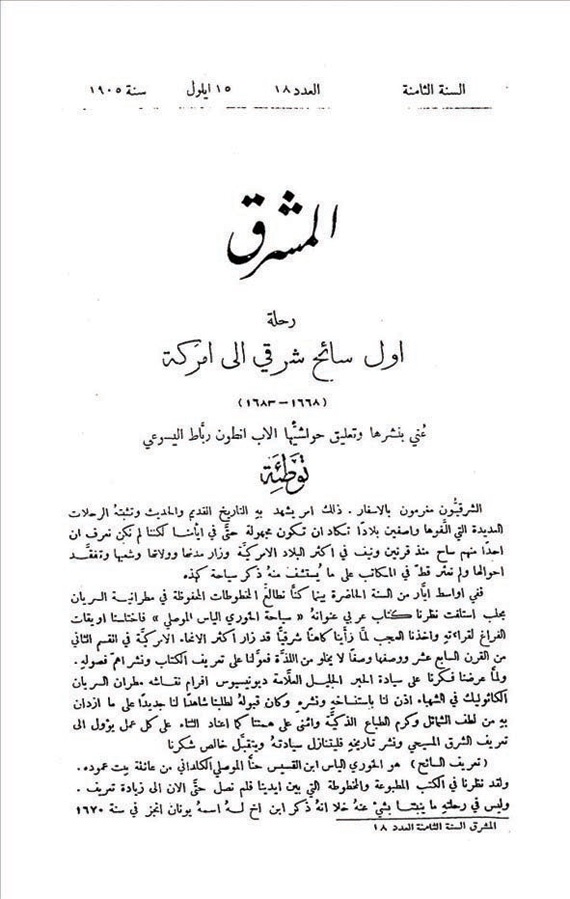 السنة الثامنة العدد ١٨ ١٥ ايلول سنة ١٩٠٥
المشرق
رحلة
اول سائح شرقي الى امركة
(١٦٦٨ – ١٦٨٣)
عُني بنشرها وتعليق حواشيها الاب انطون ربّاط اليسوعي
توطئة
الشرقيُّون مغرمون بالاسفار. ذلك امر يشهد به التاريخ القديم والحديث وتثبتهُ الرحلات
العديدة التي الَّفوها واصفين بلادًا تكاد ان تكون مجهولة حتَّى في ايَّامنا لكننا لم نكن نعرف ان
احدًا منهم ساح منذ قرنين ونيف في اكثر البلاد الامركيَّة وزار مدنها وولاتها وشعبها وتفقَّد
احوالها ولم نعثر قطّ في المكاتب على ما يُستشفّ منهُ ذكر سياحة كهذه
ففي اواسط ايَّار من السنة الحاضرة بينما كنَّا نطالع المخطوطات المحفوظة في مطرانية السريان
بحلب استلفت نظرنا كتاب عربي عنوانهُ « سياحة الخوري الياس الموصلي » فاختلسنا اويقات
الفراغ لقراءتهِ واخذنا العجب لمَّا رأينا كاهنًا شرقيًّا قد زار اكثر الانحاء الامركيَّة في القسم الثاني
من القرن السابع عشر ووصفها وصفًا لا يخلو من اللذَّة فعوَّلنا على تعريف الكتاب ونشر اهمّ فصولهِ.
ولمَّا عرضنا فكرنا على سيادة الحبر الجليل العلَّامة ديونيسيوس افرام نقاشه مطران السريان
الكاثوليك في الشهباء اذن لنا باستنساخهِ ونشرهِ وكان قبولهُ لطلبنا شاهدًا لنا جديدًا على ما ازدان
بهِ من لطف الشمائل وكرم الطباع الذكيَّة واثنى على همتنا كما اعتاد الثناء على كل عمل يؤول الى
تعريف الشرق المسيحي ونشر تاريخهِ فليتنازل سيادتهُ ويتقبَّل خالص شكرنا
(تعريف السائح) هو الخوري الياس ابن القسيس حنَّا الموصلي الكلداني من عائلة بيت عموده.
ولقد نظرنا في الكتب المطبوعة والمخطوطة التي بين ايدينا فلم نصل حتَّى الان الى زيادة تعريف.
وليس في رحلتهِ ما ينبئنا بشيْ عنهُ خلا انهُ ذكر ابن اخ لهُ اسمهُ يونان انجز في سنة ١٦٧٠
المشرق السنة الثامنة العدد ١٨